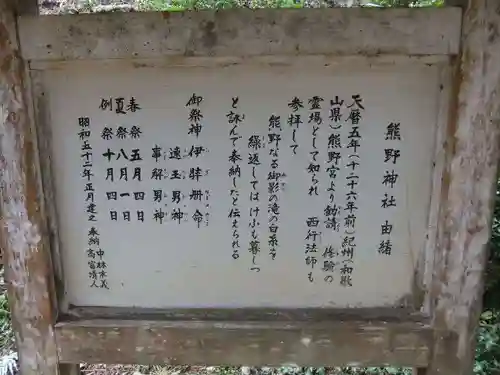 熊野神社 由緒
天暦五年(十二十六年前)紀州(和歌
山県)熊野宮より勧請 修験の
霊場として知られ 西行法師も
参拝して
熊野なる御影の滝の白糸を
繰返してはけ小も暮しつ
と詠んで奉納したと伝えられる
御祭神 伊弉册命
速玉男神
事解男神
例祭
春祭 五月四日
夏祭 八月一日
祭 十月四日
昭和五十二年正月建之 奉納
高宮清人